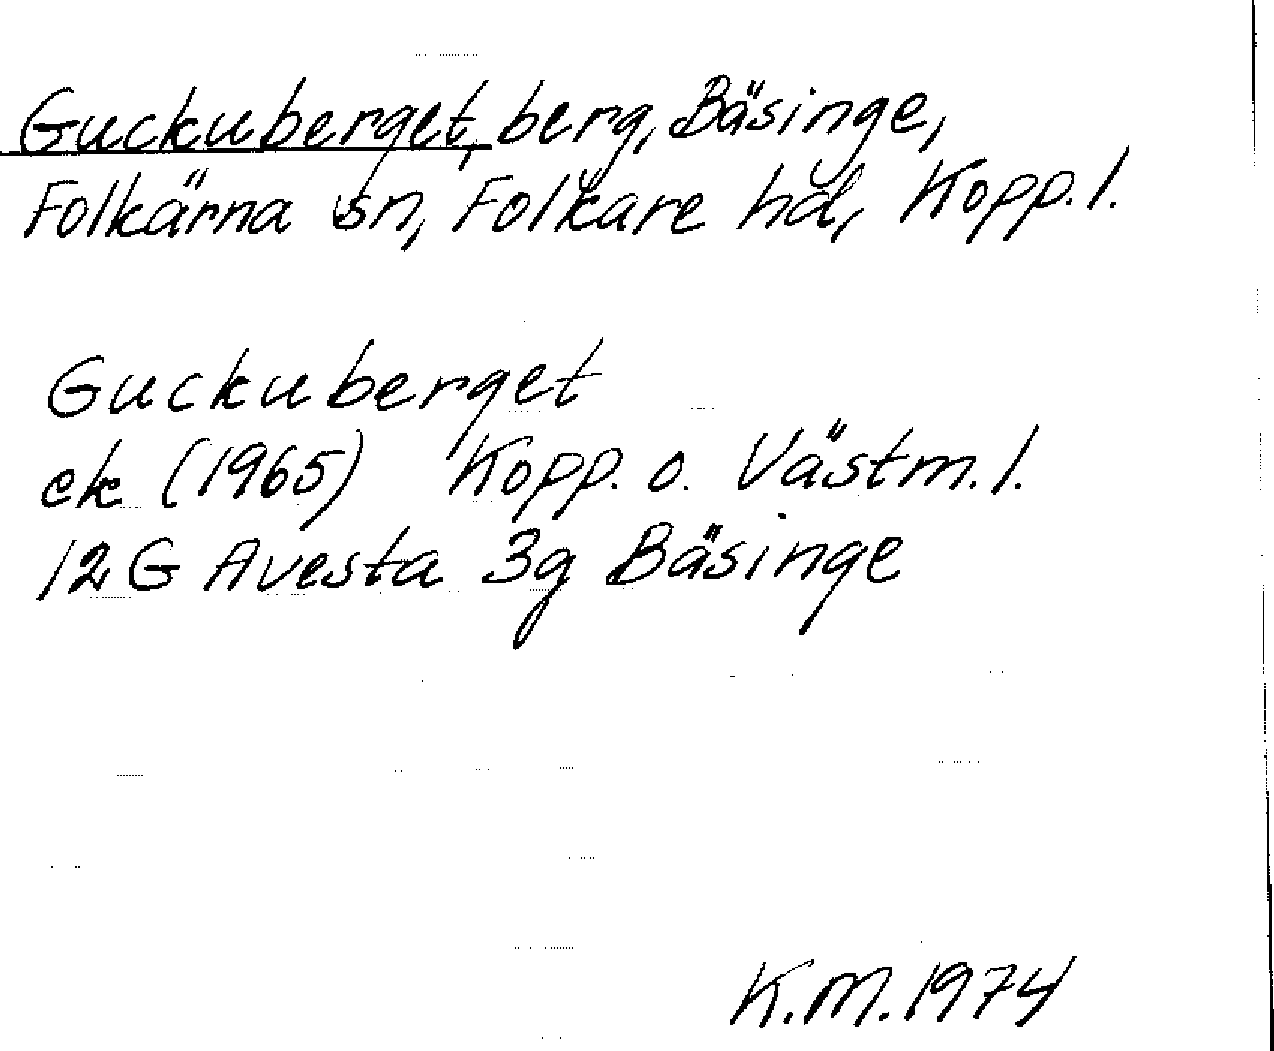 Guckuberget, berg, Bäsinge,
Folkärna sn, Folkare hd, Kopp. l.
Guckuberget
ek (1965) Kopp. o. Västm. l.
12 G Avesta 3g Bäsinge
K.M. 1974